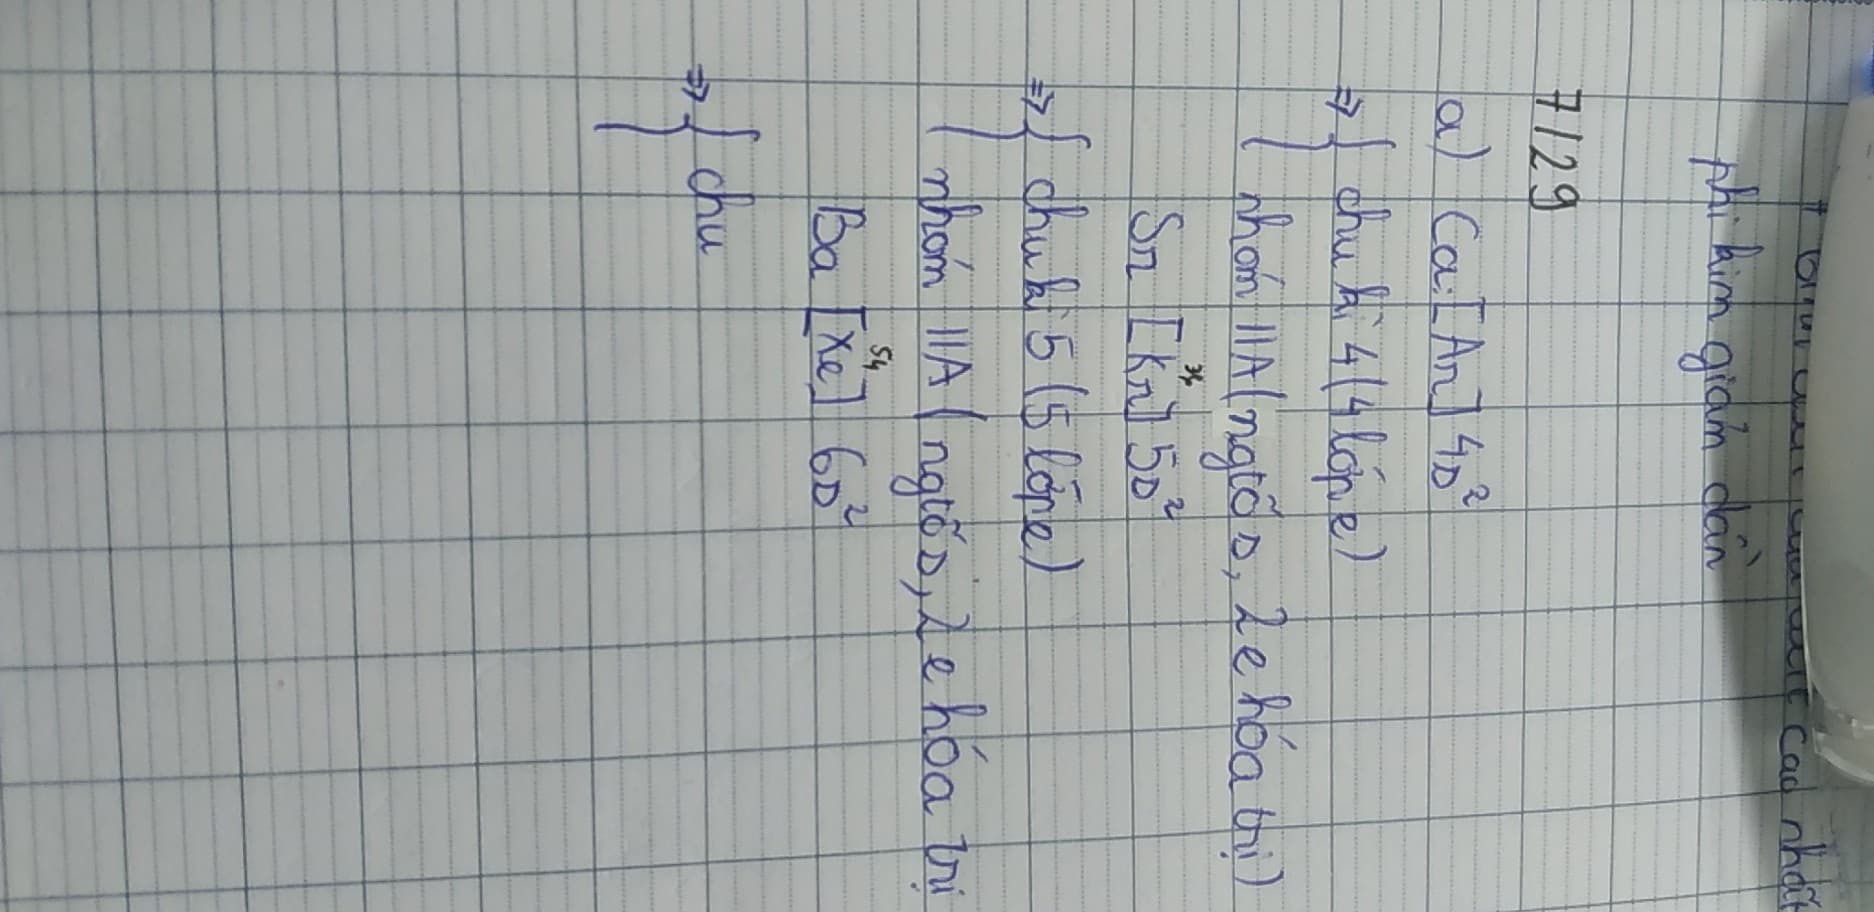 cao nhất
phi kim giảm dần
7/29
a) Ca: [Ar] 4s²
⇒ { chu kì 4 (4 lớp e)
nhóm IIA (ngtố s, 2 e hóa trị)
Sr [Kr]³⁶ 5s²
⇒ { chu kì 5 (5 lớp e)
nhóm IIA (ngtố s, 2 e hóa trị
Ba [Xe]⁵⁴ 6s²
⇒ { chu